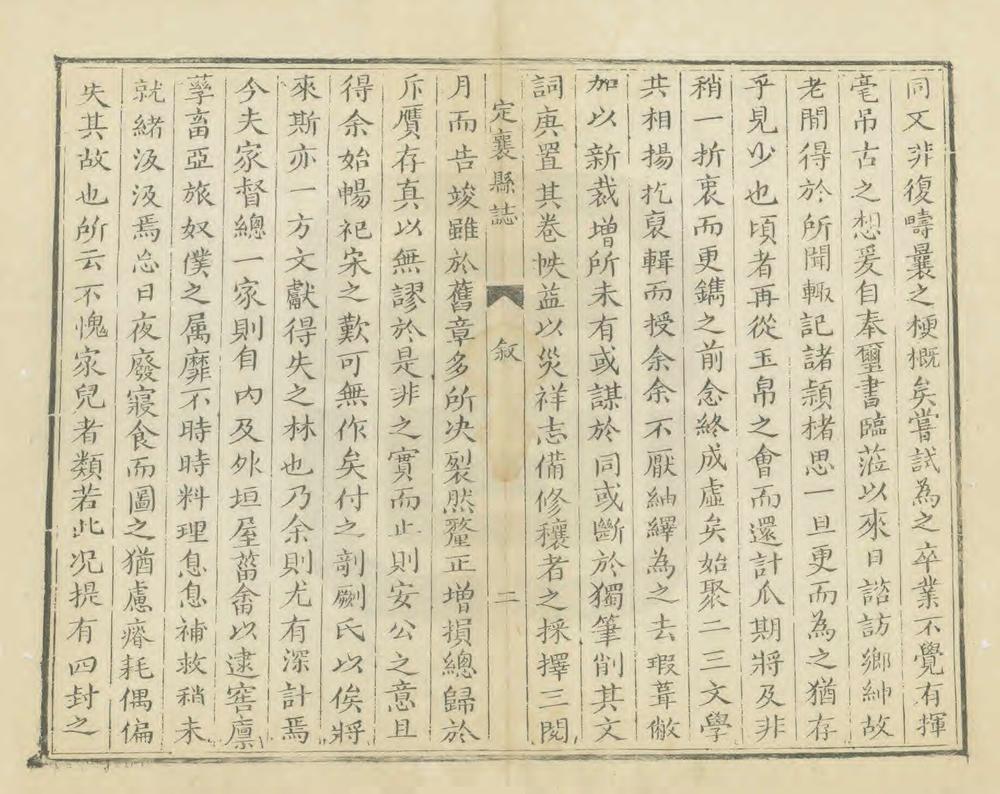 同文非復疇曩之梗概矣嘗試為之卒業不覺有揮
毫吊古之想爰自奉璽書臨蒞以來日諮訪鄉紳故
老閒得於所聞輙記諸頴楮思一旦更而為之猶存
乎見少也頃者再從玉帛之會而還計瓜期將及非
稍一折衷而更鐫之前念終成虛矣始聚二三文學
共相揚扢裒輯而授余余不厭紬繹為之去瑕葺敝
加以新裁增所未有或謀於同或斷於獨筆削其文
詞庚置其卷帙益以災祥志備修穰者之採擇三閱
定襄縣誌 敘 二
月而告竣雖於舊章多所决裂然釐正增損總歸於
斥贋存真以無謬於是非之實而止則安公之意且
得余始暢祀宋之歎可無作矣付之剞劂氏以俟將
來斯亦一方文獻得失之林也乃余則尤有深計焉
今夫家督總一家則自內及外垣屋菑畬以逮窖廪
孳畜亞旅奴僕之属靡不時時料理息息補救稍未
就緒汲汲焉忘日夜廢寢食而圖之猶慮瘠耗偶偏
失其故也所云不愧家兒者類若此况提有四封之